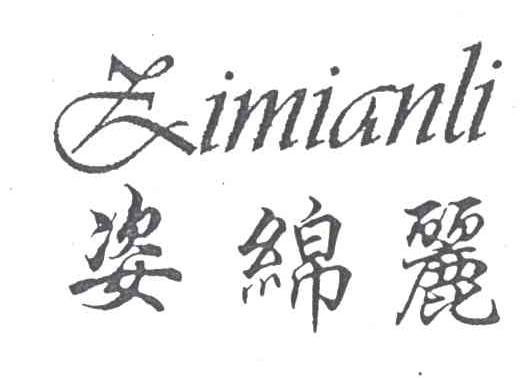 Zimianli
姿綿麗